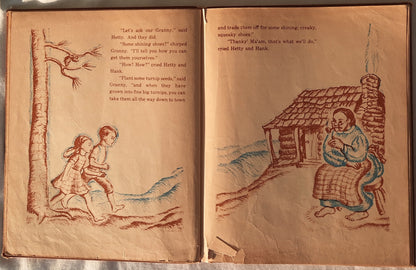 "Let's ask our Granny," said
Hetty. And they did.
"Some shining shoes?" chirped
Granny. "I'll tell you how you can
get them yourselves."
"How? How?" cried Hetty and
Hank.
"Plant some turnip seeds," said
Granny, "and when they have
grown into fine big turnips, you can
take them all the way down to town
and trade them off for some shining, creaky,
squeaky shoes."
"Thanky' Ma'am, that's what we'll do,"
cried Hetty and Hank.